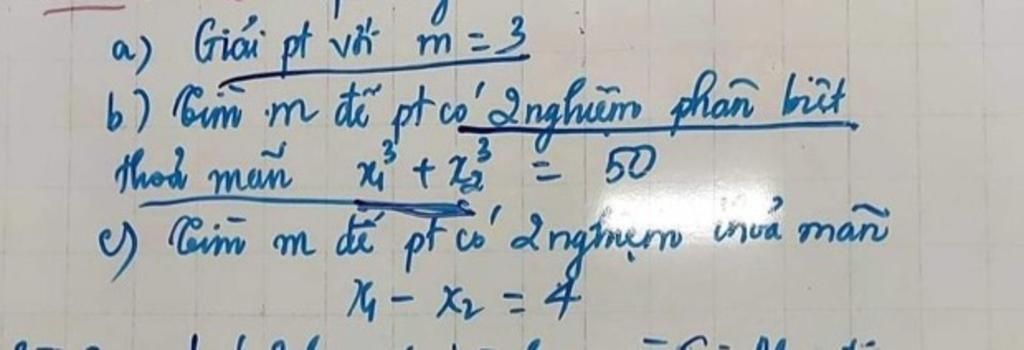 a) Giải pt với m = 3
b) Tìm m để pt có 2 nghiệm phân biệt
thoả mãn x₁³ + x₂³ = 50
c) Tìm m để pt có 2 nghiệm thoả mãn
x₁ - x₂ = 4